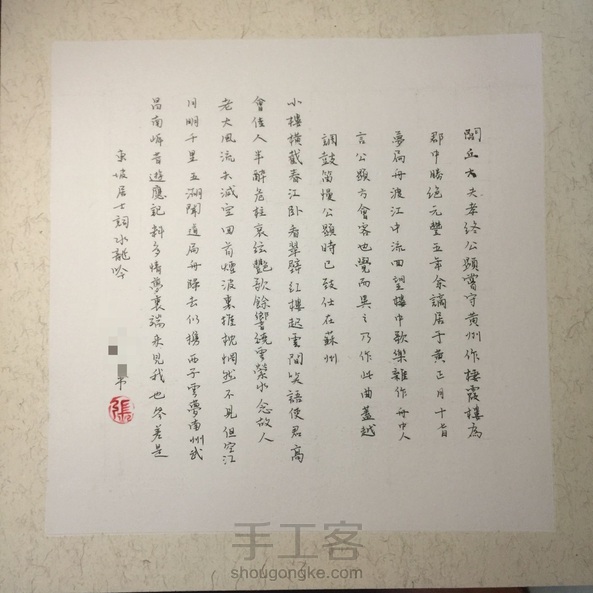 閭丘大夫孝终公顯嘗守黄州作棲霞樓為
郡中勝绝元豐五年余謫居于黄正月十七日
夢扁舟渡江中流回望樓中歌樂雜作舟中人
言公顯方會客也覺而異之乃作此曲蓋越
調鼓笛慢公顯時已致仕在蘇州
小樓横截春江卧看翠壁红樓起雲間笑語使君高
會佳人半醉危柱哀絃艷歌餘響繞雲縈水念故人
老大風流未減空回首煙波裏推枕惘然不見但空江
月明千里五湖聞道扁舟歸去仍携西子雲夢南州武
昌南岸昔遊應記料多情夢裏端来見我也参差是
東坡居士詞水龍吟
张
手工客
shougongke.com